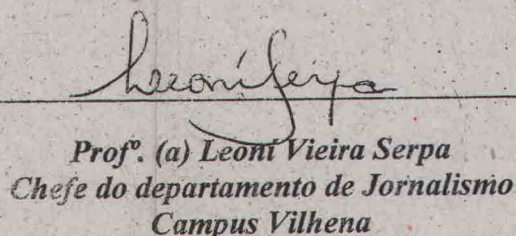 Leoní Serpa
Profº. (a) Leoni Vieira Serpa
Chefe do departamento de Jornalismo
Campus Vilhena